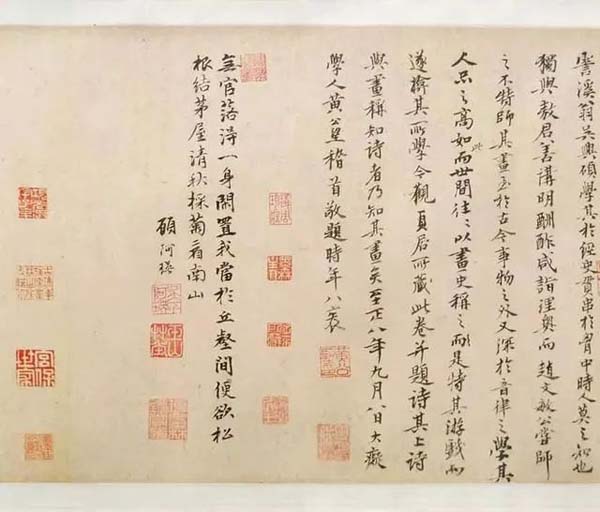 霅溪翁吳興碩學其於經史貫串於胷中時人莫之知也
獨與敖君善講明酬酢咸詣理奧而趙文敏公嘗師
之不特師其畫至於古今事物之外又深於音律之學其
人品之高如此而世間往々以畫史稱之而是特其游戲而
遂掩其所學今觀貞居所藏此卷并題詩其上詩
與畫稱知詩者乃知其畫矣至正八年九月八日大癡
學人黃公望稽首敬題時年八袠
無官落得一身閒置我當於丘壑間便欲松
根結茅屋清秋採菊看南山
顧阿瑛